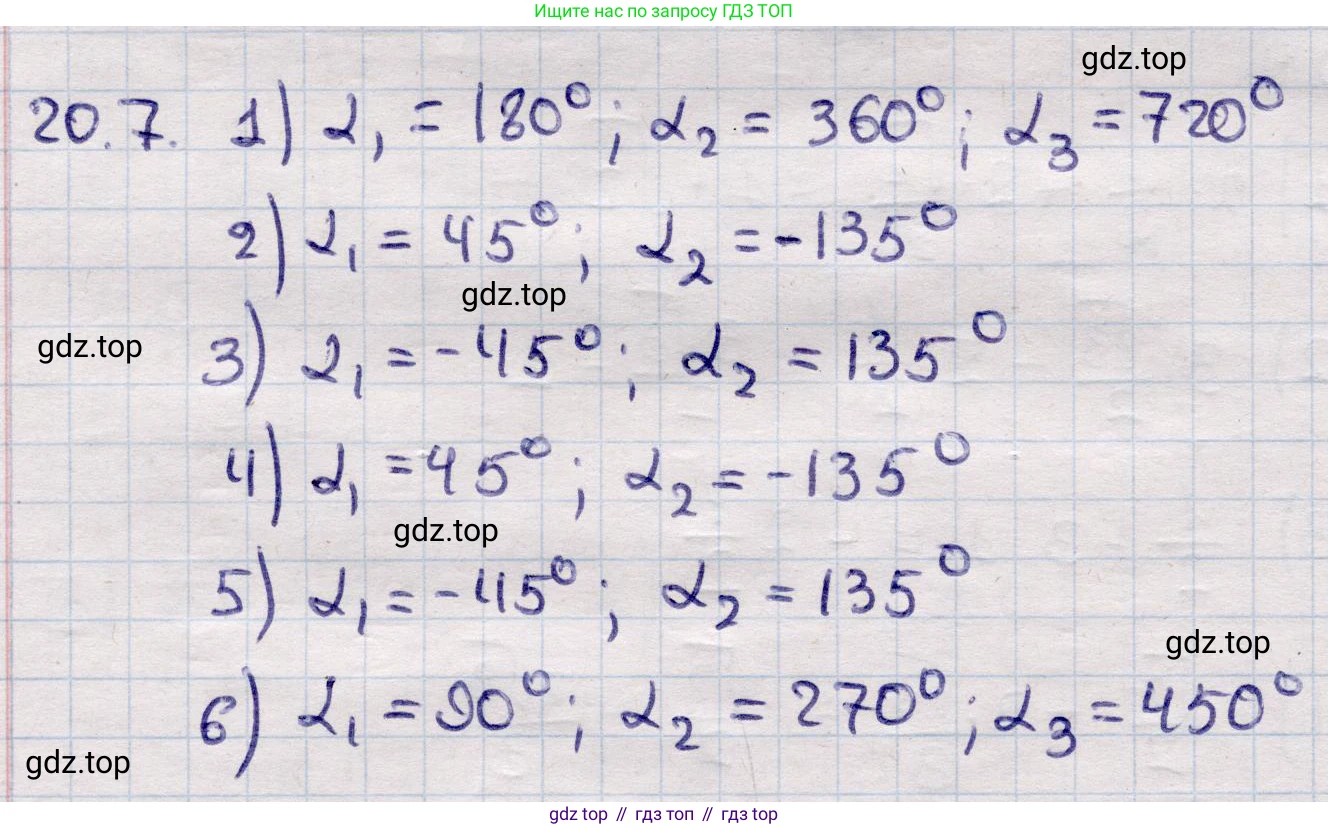 Ищите нас по запросу ГДЗ ТОП
gdz.top
20.7. 1) α₁ = 180⁰; α₂ = 360⁰; α₃ = 720⁰
2) α₁ = 45⁰; α₂ = -135⁰
gdz.top
gdz.top
3) α₁ = -45⁰; α₂ = 135⁰
4) α₁ = 45⁰; α₂ = -135⁰
gdz.top
5) α₁ = -45⁰; α₂ = 135⁰
gdz.top
6) α₁ = 90⁰; α₂ = 270⁰; α₃ = 450⁰
gdz.top
gdz top // гдз топ // гдз top